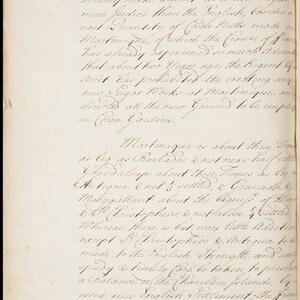 more Indico than the English, besides a
vast Quantity of Cocoa Nutts made
Martinique, of which the Crown of
has already experienced so much Advant
that about two Years ago, the Regent by
Arret has prohibited the erecting any
new Sugar Works at Martinique, and
directed all the new Ground to be employ
in Cocoa Gardens.
Martinique is about three Times
as big as Barbados & not near half settled
Guardaloupe about three Times as big
Antigua & not ¼ settled, & Granada &
Mariygallant about the bigness of
& St. Christophers, & not above settled
Whereas there is but very little Addition
except St. Christophers & Antigua to be
made to the English Strength, and
speedy & timely Care be taken to preserve
a Ballance in the Charibbee Islands, by
some new English Settlement, the